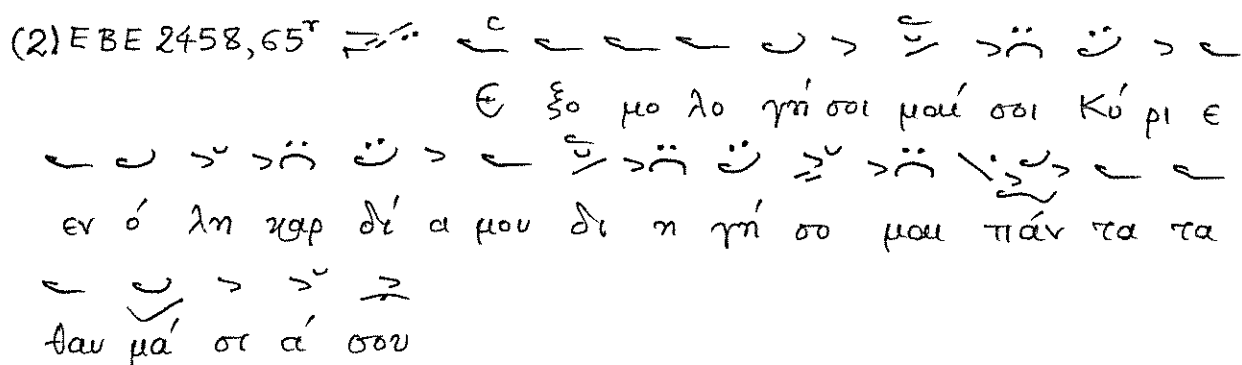 (2) ΕΒΕ 2458, 65r
Ε ξο μο λο γή σοι μαί σοι Κύ ρι ε
εν ό λη καρ δί α μου δι η γή σο μαι πάν τα τα
θαυ μά σι ά σου